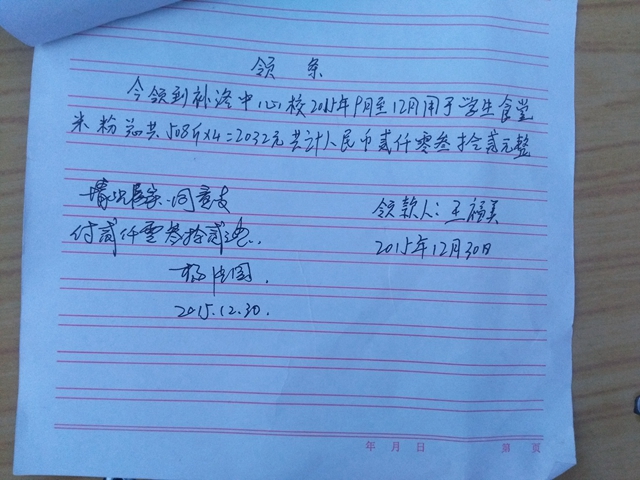 领条
今领到补洛中心校2015年9月至12月用于学生食堂
米粉款共508斤×4=2032元共计人民币贰仟零叁拾贰元整
情况属实.同意支
付贰仟零叁拾贰元.
领款人:王福美
2015年12月30日
2015.12.30.
年 月 日 第 页